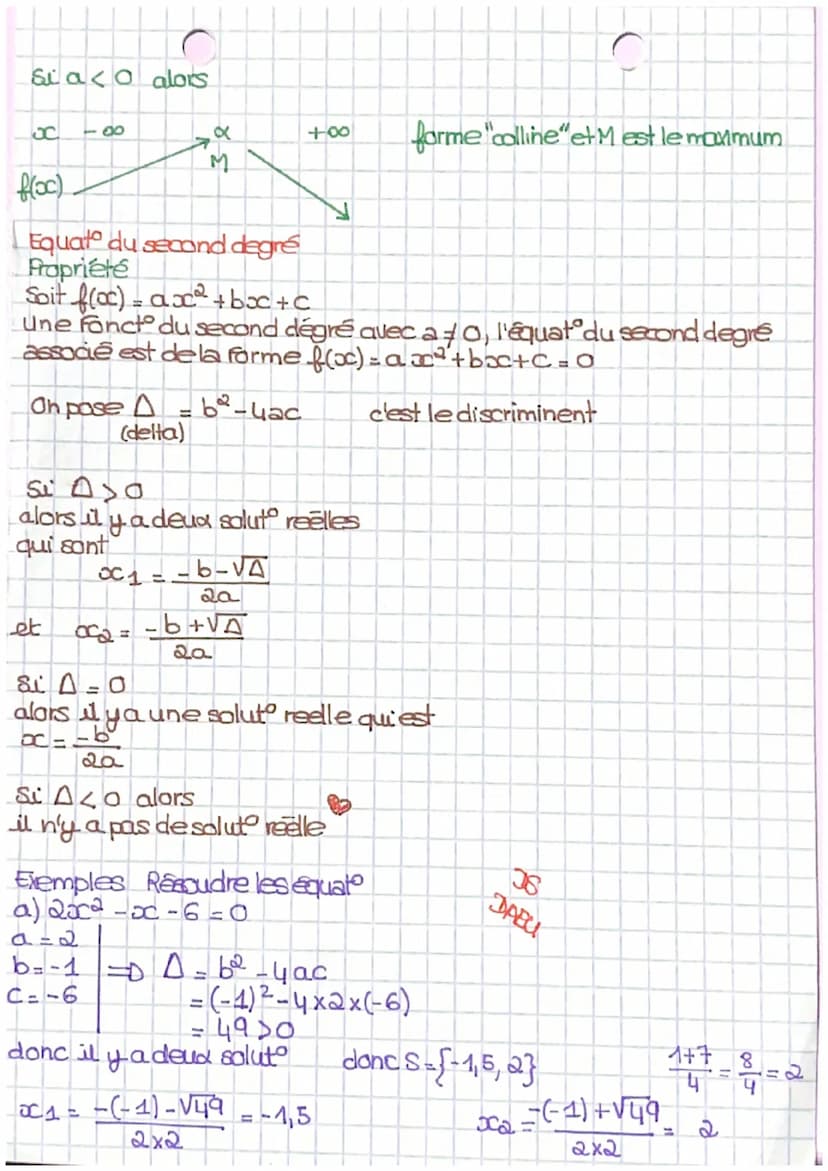 Si a < 0 alors
x -∞ α +∞ forme "colline" et M est le maximum
M
f(x)
Equat° du second degré
Propriété
Soit f(x) = ax² + bx + c
une fonct° du second dégré avec a ≠ 0, l'équat° du second degré
associé est de la forme f(x) = ax² + bx + c = 0
On pose Δ = b² - 4ac c'est le discriminent
(delta)
Si Δ > 0
alors il y a deux solut° réelles
qui sont
x1 = (-b - √Δ) / 2a
et x2 = (-b + √Δ) / 2a
Si Δ = 0
alors il y a une solut° reelle qui est
x = -b / 2a
Si Δ < 0 alors
il n'y a pas de solut° réelle
Exemples Résoudre les équat°
JS
DAEU
a) 2x² - x - 6 = 0
a = 2
b = -1 => Δ = b² - 4ac
c = -6 = (-1)² - 4 x 2 x (-6)
= 49 > 0
donc il y a deux solut° donc S = {-1,5, 2} (1+7) / 4 = 8 / 4 = 2
x1 = (-(-1) - √49) / (2 x 2) = -1,5 x2 = (-(-1) + √49) / (2 x 2) = 2